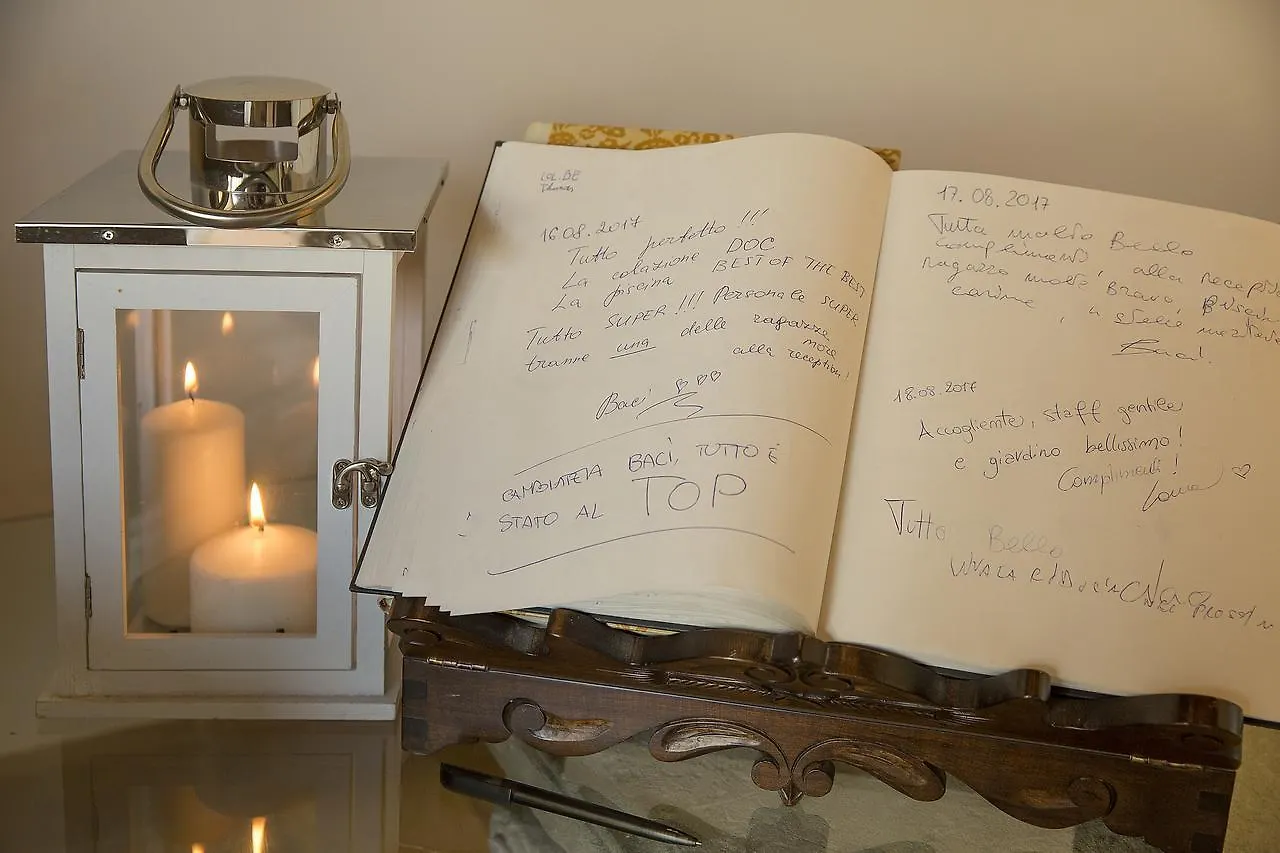 LOL.BE
Thomas
16.08.2017
Tutto perfetto !!!
La colazione DOC
La piscina BEST OF THE BEST
Tutto SUPER!!! Personale SUPER
tranne una delle ragazze
more
alla reception!
Baci
TUTTO È
BACI,
STATO AL TOP
17.08.2017
Tutto molto Bello
complimenti, alla reception
ragazze molto Brave,
carine,
Baci.
18.08.2017
Accogliente, staff gentile
e giardino bellissimo!
Complimenti!
Tutto Bello